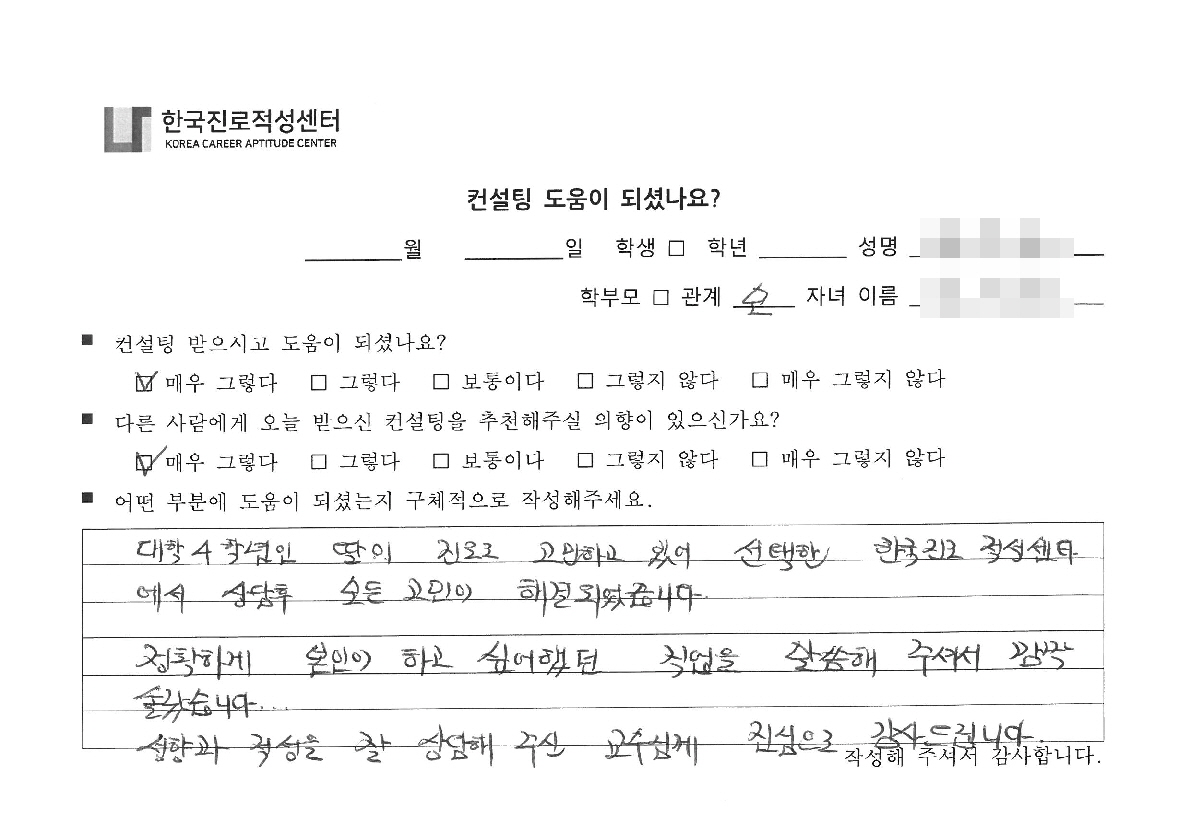 한국진로적성센터
KOREA CAREER APTITUDE CENTER
컨설팅 도움이 되셨나요?
월 일 학생 □ 학년 성명
학부모 □ 관계 자녀 이름
■ 컨설팅 받으시고 도움이 되셨나요?
☑ 매우 그렇다 □ 그렇다 □ 보통이다 □ 그렇지 않다 □ 매우 그렇지 않다
■ 다른 사람에게 오늘 받으신 컨설팅을 추천해주실 의향이 있으신가요?
☑ 매우 그렇다 □ 그렇다 □ 보통이다 □ 그렇지 않다 □ 매우 그렇지 않다
■ 어떤 부분에 도움이 되셨는지 구체적으로 작성해주세요.
대학 4학년인 딸이 진로로 고민하고 있어 선택한 한국진로 적성센타
에서 상담후 모든 고민이 해결되었습니다.
정확하게 본인이 하고 싶어했던 직업을 말씀해 주셔서 깜짝
놀랐습니다...
성향과 적성을 잘 상담해 주신 교수님께 진심으로 감사드립니다.
작성해 주셔서 감사합니다.